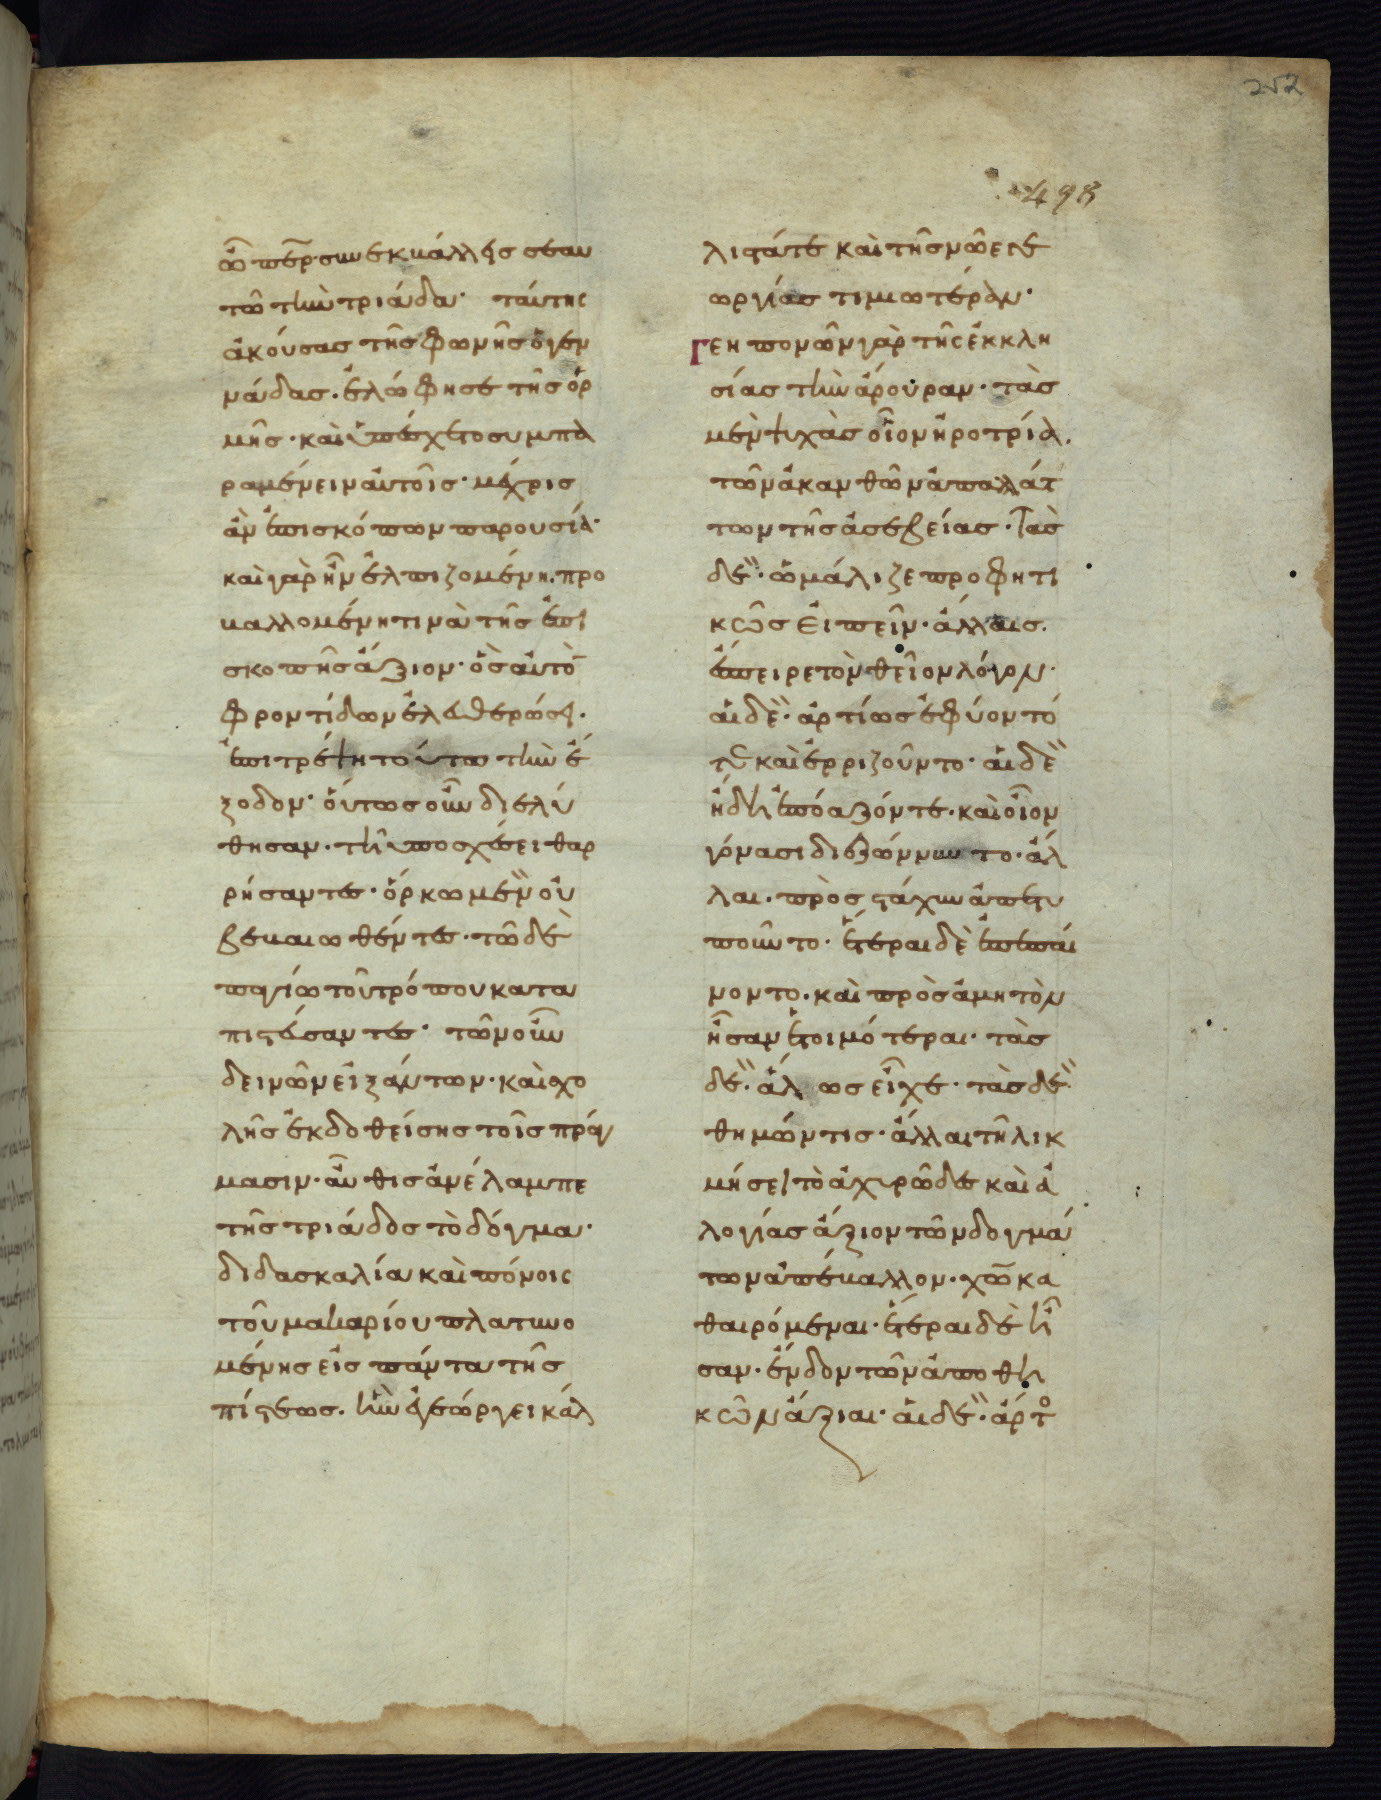 252
498
ὦ πάτερ συνεκβάλλεις σεαυ
τῶ τὴν τριάδα· ταύτης
ἀκούσας τῆς φωνῆς ὁ γεν
νάδας· ἐλώφησε τῆς ὁρ
μῆς· καὶ ὑπέσχετο συμπα
ραμένειν αὐτοῖς· μέχρις
ἂν ἐπισκόπων παρουσία·
καὶ γὰρ ἦν ἐλπιζομένη· προ
βαλλομένη τινὰ τῆς ἐπι
σκοπῆς ἄξιον· ὃς αὐτὸν
φροντίδων ἐλευθερώσει·
ἐπιτρέψη τούτω τὴν ἔ
ξοδον· οὕτως οὖν διελύ
θησαν· τῆ ὑποσχέσει θαρ
ρήσαντες· ὅρκω μὲν οὐ
βεβαιωθέντες· τῶ δὲ
παγίω τοῦ τρόπου κατα
πιστεύσαντες· τῶν οὖν
δεινῶν εἰξάντων· καὶ σχο
λῆς ἐκδοθείσης τοῖς πράγ
μασιν· αὖθις ἀνέλαμπε
τῆς τριάδος τὸ δόγμα·
διδασκαλία καὶ πόνοις
τοῦ μακαρίου πλατυνο
μένης εἰς πάντα τῆς
πίστεως. ἣν ἐγεώργει κάλ
λιστά τε καὶ τῆς μωσέως
ωργίας τιμιωτέραν·
Γεηπονῶν γὰρ τῆς ἐκκλη
σίας τὴν ἄρουραν· τὰς
μὲν ψυχὰς οἷον ἠροτρία.
τῶν ἀκανθῶν ἀπαλλάτ
των τῆς ἀσεβείας· Τὰς
δὲ· ὡμάλιζε προφητι
κῶς εἰπεῖν· ἄλλαις.
ἔσπειρε τὸν θεῖον λόγον·
αἱ δὲ· ἀρτίως ἐφύοντό
τε καὶ ἐρριζοῦντο· αἱ δὲ
ἤδη ἐπόαζόν τε· καὶ οἷον
γόνασι διεζώννυντο· ἄλ
λαι· πρὸς στάχυν ἀπετυ
ποῦντο· ἕτεραι δὲ ἐπεπαί
νοντο· καὶ πρὸς ἄμητον
ἦσαν ἑτοιμότεραι· τὰς
δὲ· ἅλως εἶχε· τὰς δὲ·
θημώντις· ἄλλαι τῆ λικ
μήσει τὸ ἀχυρῶδες καὶ ἀ
λογίας ἄξιον τῶν δογμά
των ἀπέβαλλον· χοῦν κα
θαιρόμεναι· ἕτεραι δὲ ἦ
σαν· ἔνδον τῶν ἀποθη
κῶν ἄξιαι· αἱ δὲ· ἄρτος